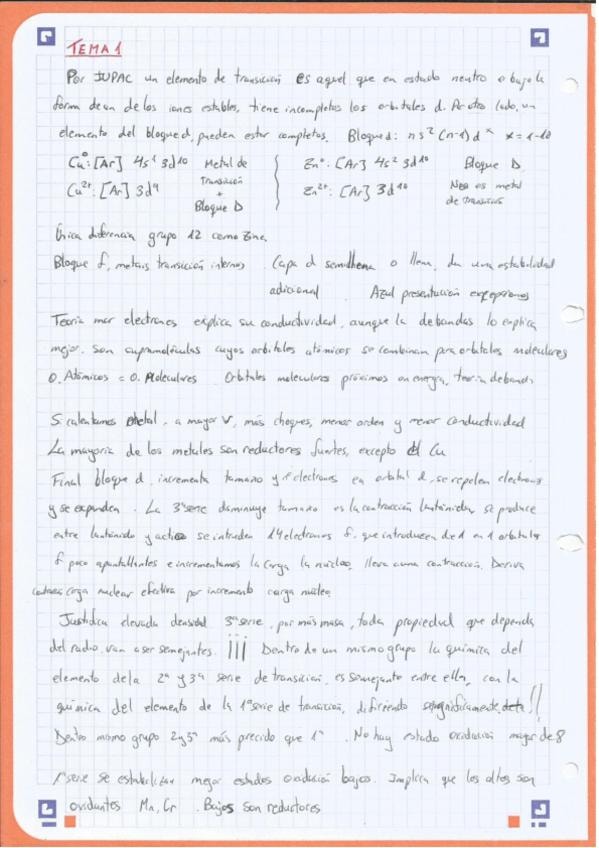 TEMA 1
Por IUPAC un elemento de transición es aquel que en estado neutro o bajo la
forma de un de los iones estables, tiene incompletos los orbitales d. Por otro lado, un
elemento del bloque d, pueden estar completos. Bloque d: ns² (n-1)d^x x=1-10
Cu⁰: [Ar] 4s¹ 3d¹⁰ Metal de Transición + Bloque D
Cu²⁺: [Ar] 3d⁹
Zn⁰: [Ar] 4s² 3d¹⁰ Bloque D
Zn²⁺: [Ar] 3d¹⁰ No es metal de transición
Única diferencia grupo 12 como Zinc.
Bloque f, metais transición internos. Capa d semillena o llena, da una estabilidad
adicional Azul presentación excepciones
Teoría mar electrones explica su conductividad, aunque la de bandas lo explica
mejor. Son supramoléculas cuyos orbitales atómicos se combinan para orbitales moleculares
O. Atómicos = O. Moleculares Orbitales moleculares próximos en energía, teoría de bandas
Si calentamos metal, a mayor V, más choques, menor orden y menor conductividad
La mayoría de los metales son reductores fuertes, excepto el Cu
Final bloque d, incrementa tamaño y electrones en orbital d, se repelen electrones
y se expanden. La 3ª serie disminuye tamaño es la contracción lantánida, se produce
entre lantánido y se introducen 14 electrones f, que introducen de 1 en 1 orbitales
f poco apantallantes e incrementamos la carga la núcleo, lleva a una contracción. Deriva
carga nuclear efectiva por incremento carga núcleo.
Justifica elevada densidad 3ª serie, por más masa, toda propiedad que dependa
del radio, van a ser semejantes. ¡¡¡ Dentro de un mismo grupo la química del
elemento de la 2ª y 3ª serie de transición, es semejante entre ella, con la
química del elemento de la 1ª serie de transición, difiriendo significativamente !!
Dentro mismo grupo 2 y 3ª más parecido que 1ª. No hay estado oxidación mayor de 8
1ª serie se estabilizan mejor estados oxidación bajos. Implica que los altos son
oxidantes Mn, Cr. Bajos son reductores